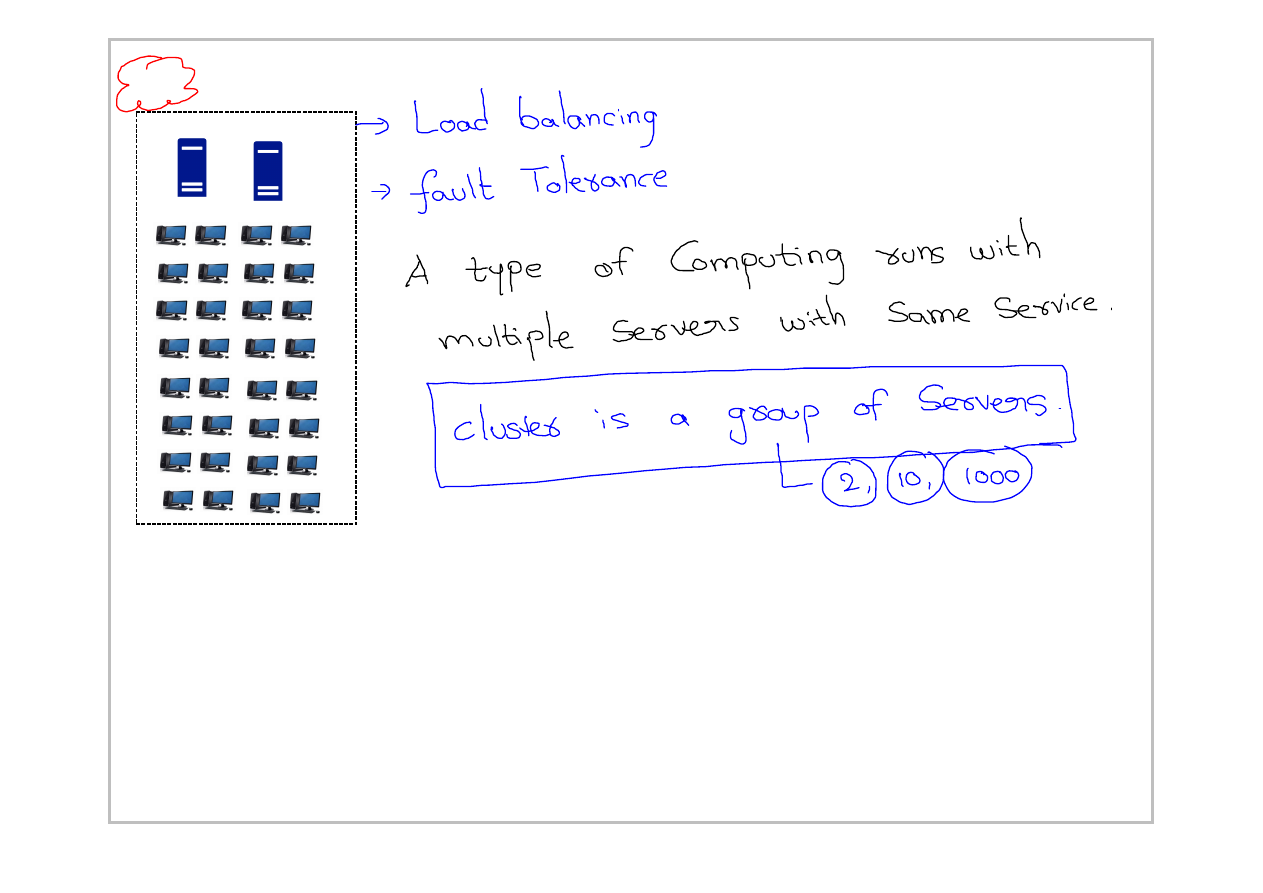 → Load balancing
→ fault Tolerance
A type of Computing runs with
multiple Servers with Same Service.
cluster is a group of Servers.
2, 10, 1000